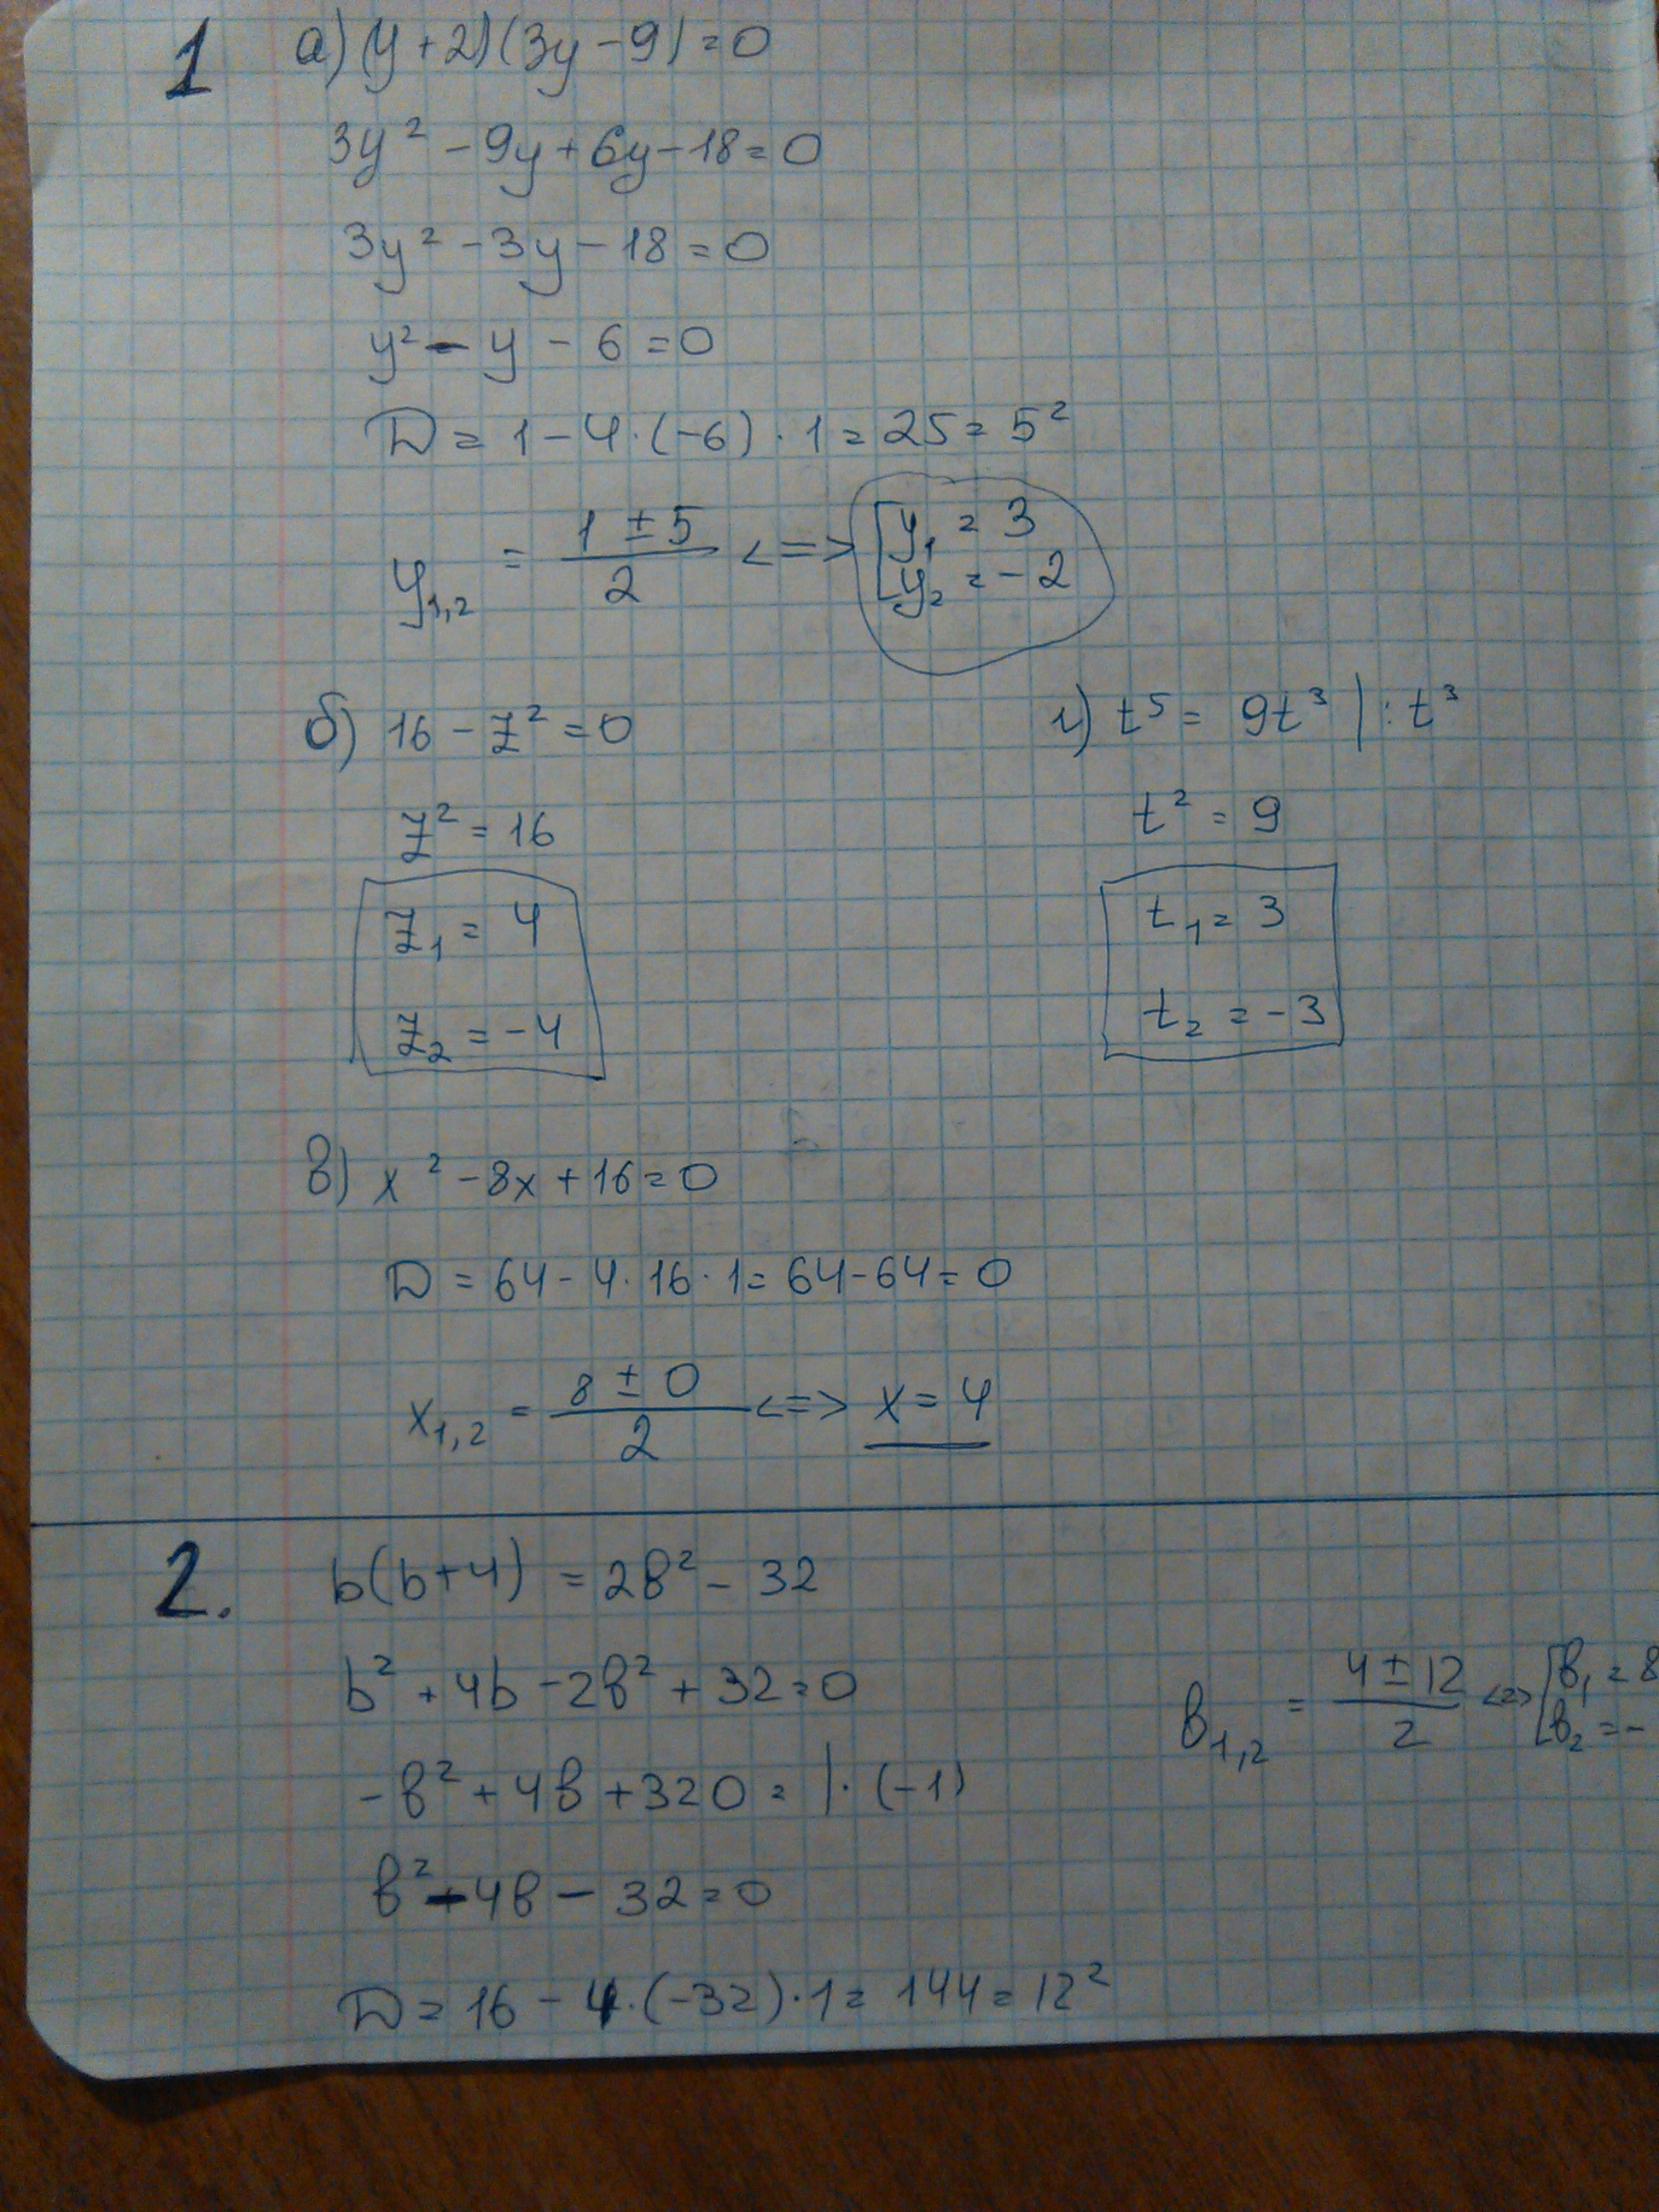 1 а) (y+2)(3y-9)=0
3y² - 9y + 6y - 18 = 0
3y² - 3y - 18 = 0
y² - y - 6 = 0
D = 1 - 4·(-6)·1 = 25 = 5²
y₁,₂ = (1 ± 5)/2 <=> [y₁ = 3
y₂ = -2
б) 16 - z² = 0
z² = 16
z₁ = 4
z₂ = -4
г) t⁵ = 9t³ | : t³
t² = 9
t₁ = 3
t₂ = -3
в) x² - 8x + 16 = 0
D = 64 - 4·16·1 = 64 - 64 = 0
x₁,₂ = (8 ± 0)/2 <=> x = 4
2. b(b+4) = 2в² - 32
b² + 4b - 2в² + 32 = 0
-в² + 4в + 320 = | · (-1)
в² - 4в - 32 = 0
D = 16 - 4·(-32)·1 = 144 = 12²
в₁,₂ = (4 ± 12)/2 <=> [в₁ = 8
в₂ = -